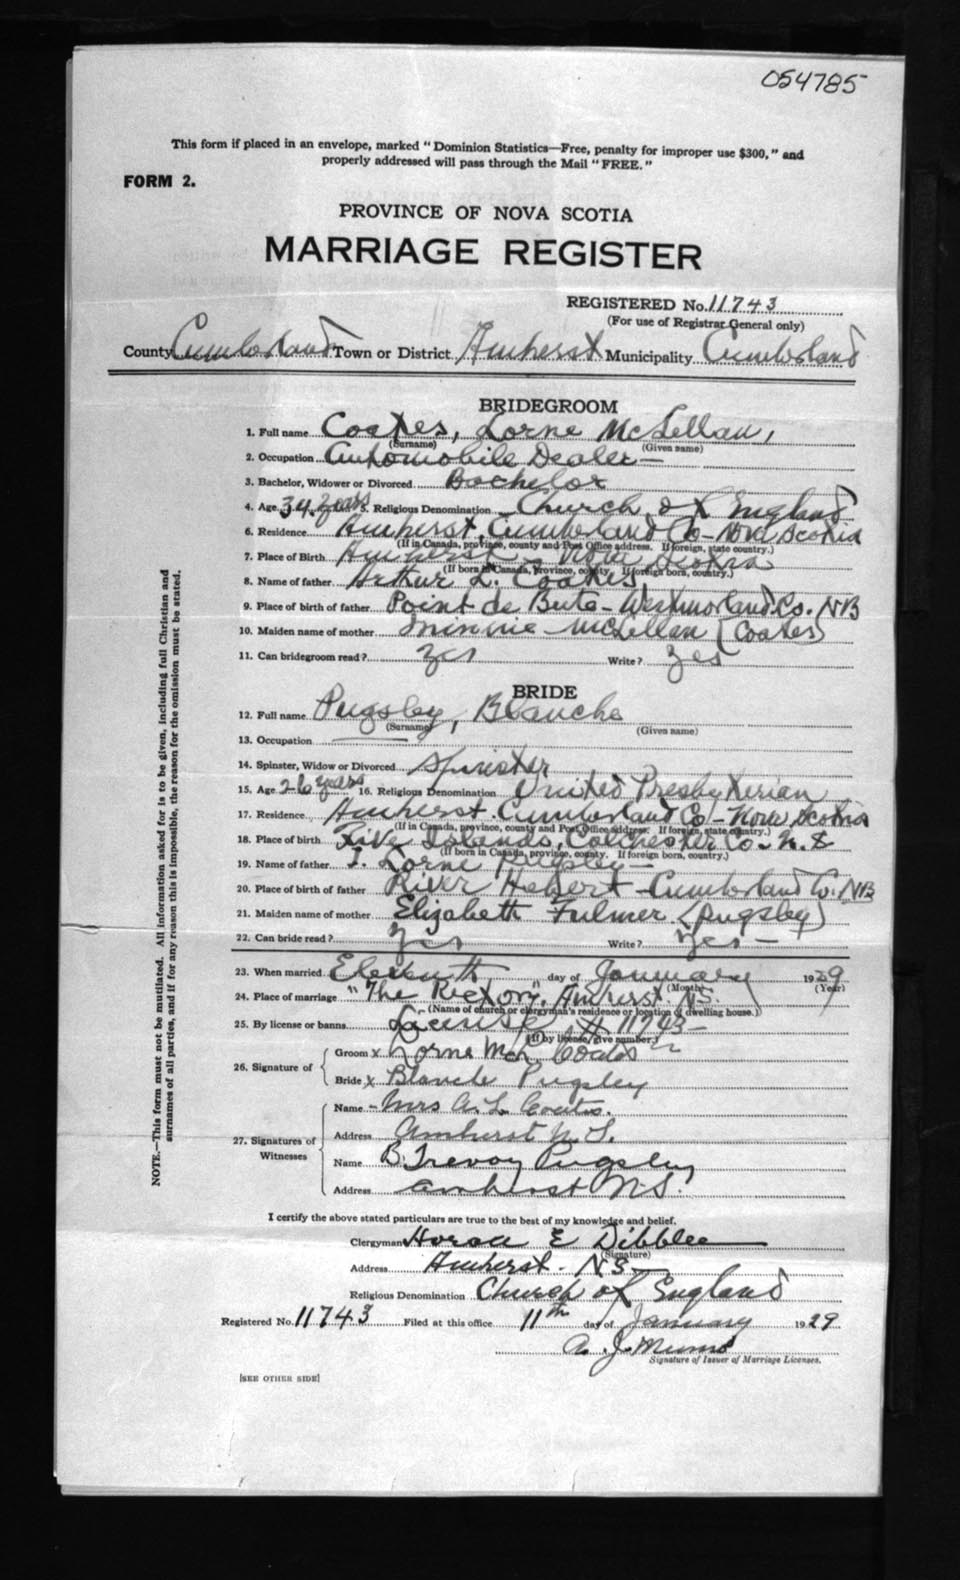 054785
This form if placed in an envelope, marked "Dominion Statistics—Free, penalty for improper use $300," and
properly addressed will pass through the Mail "FREE."
FORM 2.
PROVINCE OF NOVA SCOTIA
MARRIAGE REGISTER
REGISTERED No. 11743
(For use of Registrar General only)
County Cumberland Town or District Amherst Municipality Cumberland
BRIDEGROOM
1. Full name Coates, Lorne McLellan,
(Surname) (Given name)
2. Occupation Automobile Dealer—
3. Bachelor, Widower or Divorced Bachelor
4. Age 34 years 5. Religious Denomination Church of England
6. Residence Amherst, Cumberland Co- Nova Scotia
(If in Canada, province, county and Post Office address. If foreign, state country.)
7. Place of Birth Amherst - Nova Scotia
(If born in Canada, province, county. If foreign born, country.)
8. Name of father Arthur L. Coates,
9. Place of birth of father Point de Bute- Westmorland Co. NB
10. Maiden name of mother Minnie McLellan (Coates)
11. Can bridegroom read? Yes Write? Yes
BRIDE
12. Full name Pugsley, Blanche
(Surname) (Given name)
13. Occupation —
14. Spinster, Widow or Divorced Spinster
15. Age 26 years 16. Religious Denomination United Presbyterian
17. Residence Amherst. Cumberland Co- Nova Scotia
(If in Canada, province, county and Post Office address. If foreign, state country.)
18. Place of birth Five Islands, Colchester Co- N.S
(If born in Canada, province, county. If foreign born, country.)
19. Name of father J. Lorne Pugsley—
20. Place of birth of father River Hebert - Cumberland Co. NB
21. Maiden name of mother Elizabeth Fulmer (Pugsley)
22. Can bride read? Yes Write? Yes —
23. When married Eleventh day of January 1929
(Month) (Year)
24. Place of marriage "The Rectory," Amherst. N.S.
(Name of church or clergyman's residence or location of dwelling house.)
25. By license or banns License # 11743—
(If by license, give number.)
26. Signature of
Groom x Lorne McL Coates
Bride x Blanche Pugsley
27. Signatures of Witnesses
Name - Mrs A. L. Coates.
Address Amherst N.S.
Name B. Trevoy Pugsley
Address Amherst N.S.
I certify the above stated particulars are true to the best of my knowledge and belief.
Clergyman Horace E Dibblee
(Signature)
Address Amherst. NS—
Religious Denomination Church of England
Registered No. 11743 Filed at this office 11th day of January 1929
A. J. Munro
Signature of Issuer of Marriage Licenses.
[SEE OTHER SIDE]
NOTE.—This form must not be mutilated. All information asked for is to be given, including full Christian and
surnames of all parties, and if for any reason this is impossible, the reason for the omission must be stated.